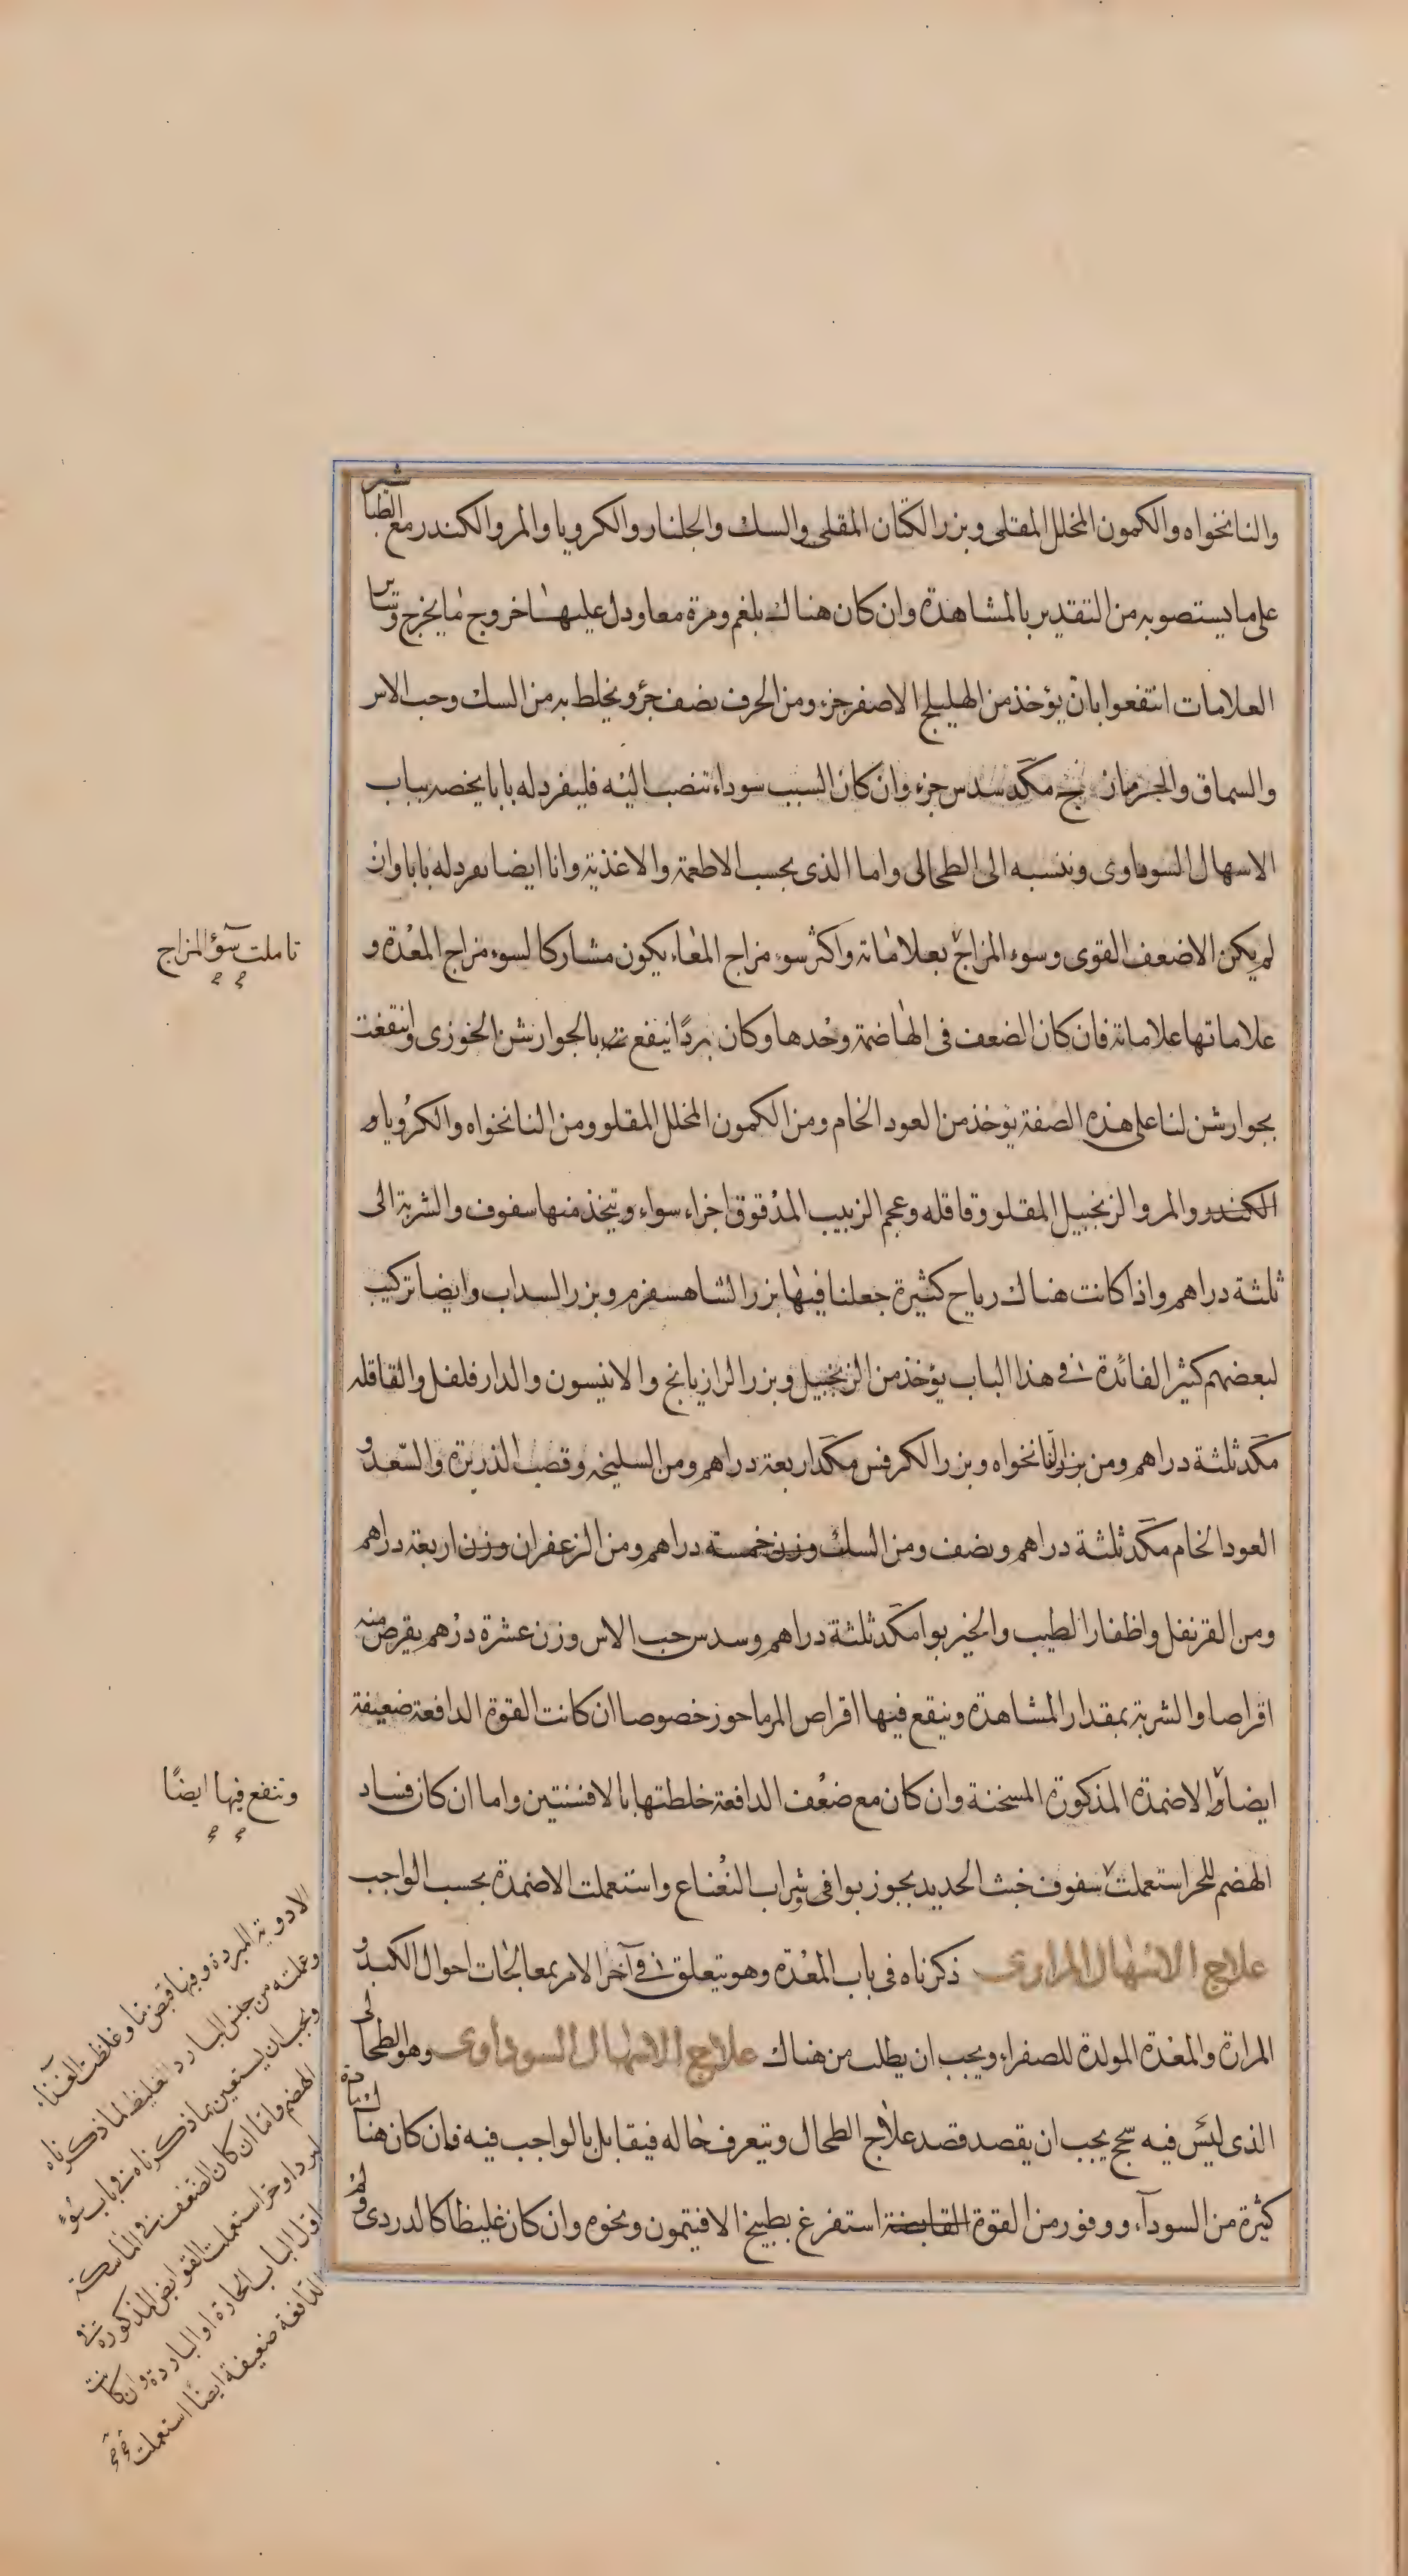 والنانخواه والكمون المخلل المقلى وبزر الكتان المقلى والسك والجلنار والكرويا والمر والكندر مع الطباشير
على ما يستصوبه من التقدير بالمشاهدة وان كان هناك بلغم ومرة معا ودل عليهما خروج ما يخرج وساير
العلامات انتفعوا بان يؤخذ من الهليلج الاصفر جزء ومن الحرف نصف جزؤ ويخلط به من السك وحب الاس
والسماق والجزمازنج مكد سدس جزء وان كان السبب سوداء تنصب اليه فليفرد له بابا يخصه بباب
الاسهال السوداوى وننسبه الى الطحالى واما الذى بحسب الاطعمة والاغذية وانا ايضا نفرد له بابا وان
لم يكن الا ضعف القوى وسوء المزاج بعلاماته واكثر سوء مزاج المعاء يكون مشاركا لسوء مزاج المعدة و
علاماتها علاماته فان كان الضعف فى الهاضمة وحدها وكان بردا ينفع بالجوارشن الخوزى وانتفعت
بجوارشن لنا على هذه الصفة يؤخذ من العود الخام ومن الكمون المخلل المقلو ومن النانخواه والكرويا و
الكندر والمر والزنجبيل المقلو وقاقله وعجم الزبيب المدقوق اجزاء سواء ويتخذ منها سفوف والشربة الى
ثلثة دراهم واذا كانت هناك رياح كثيرة جعلنا فيها بزر الشاهسفرم وبزر السداب وايضا تركيب
لبعضهم كثير الفائدة فى هذا الباب يؤخذ من الزنجبيل وبزر الرازيانج والانيسون والدارفلفل والقاقله
مكد ثلثة دراهم ومن بزر النانخواه وبزر الكرفس مكد اربعة دراهم ومن السليخه وقصب الذريرة والسعد و
العود الخام مكد ثلثة دراهم ونصف ومن السك وزن خمسة دراهم ومن الزعفران وزن اربعة دراهم
ومن القرنفل واظفار الطيب والخيربوا مكد ثلثة دراهم وسدس حب الاس وزن عشرة درهم يقرص منه
اقراصا والشربة بمقدار المشاهدة وينفع فيها اقراص المرماحوز خصوصا ان كانت القوة الدافعة ضعيفة
ايضا والاضمدة المذكورة المسخنة وان كان مع ضعف الدافعة خلطتها بالافسنتين واما ان كان فساد
الهضم للحر استعملت سفوف خبث الحديد بجوزبوا فى شراب النعناع واستعملت الاضمدة بحسب الواجب
علاج الاسهال المرارى ذكرناه فى باب المعدة وهو يتعلق فى آخر الامر بمعالجات احوال الكبد و
المرارة والمعدة المولدة للصفراء ويجب ان يطلب من هناك علاج الاسهال السوداوى وهو الطحالى
الذى ليس فيه سحج يجب ان يقصد قصد علاج الطحال ويتعرف حاله فيقابل بالواجب فيه فان كان هناك مادة
كثيرة من السوداء ووفور من القوة القابضة استفرغ بطبيخ الافتيمون ونحوه وان كان غليظا كالدردى ولم
تاملت سوء المزاج
وتنفع فيها ايضا
الادوية المبردة وفيها قبض ما وغلظت الغذاء
وعملته من جنس البارد الغليظ لما ذكرناه
ويجب ان يستعين بما ذكرناه فى باب سوء
الهضم واما ان كان الضعف فى الماسكة
لبرد او حر استعملت القوابض المذكورة فى
اول الباب الحارة او الباردة وان كانت
الدافعة ضعيفة ايضا استعملت